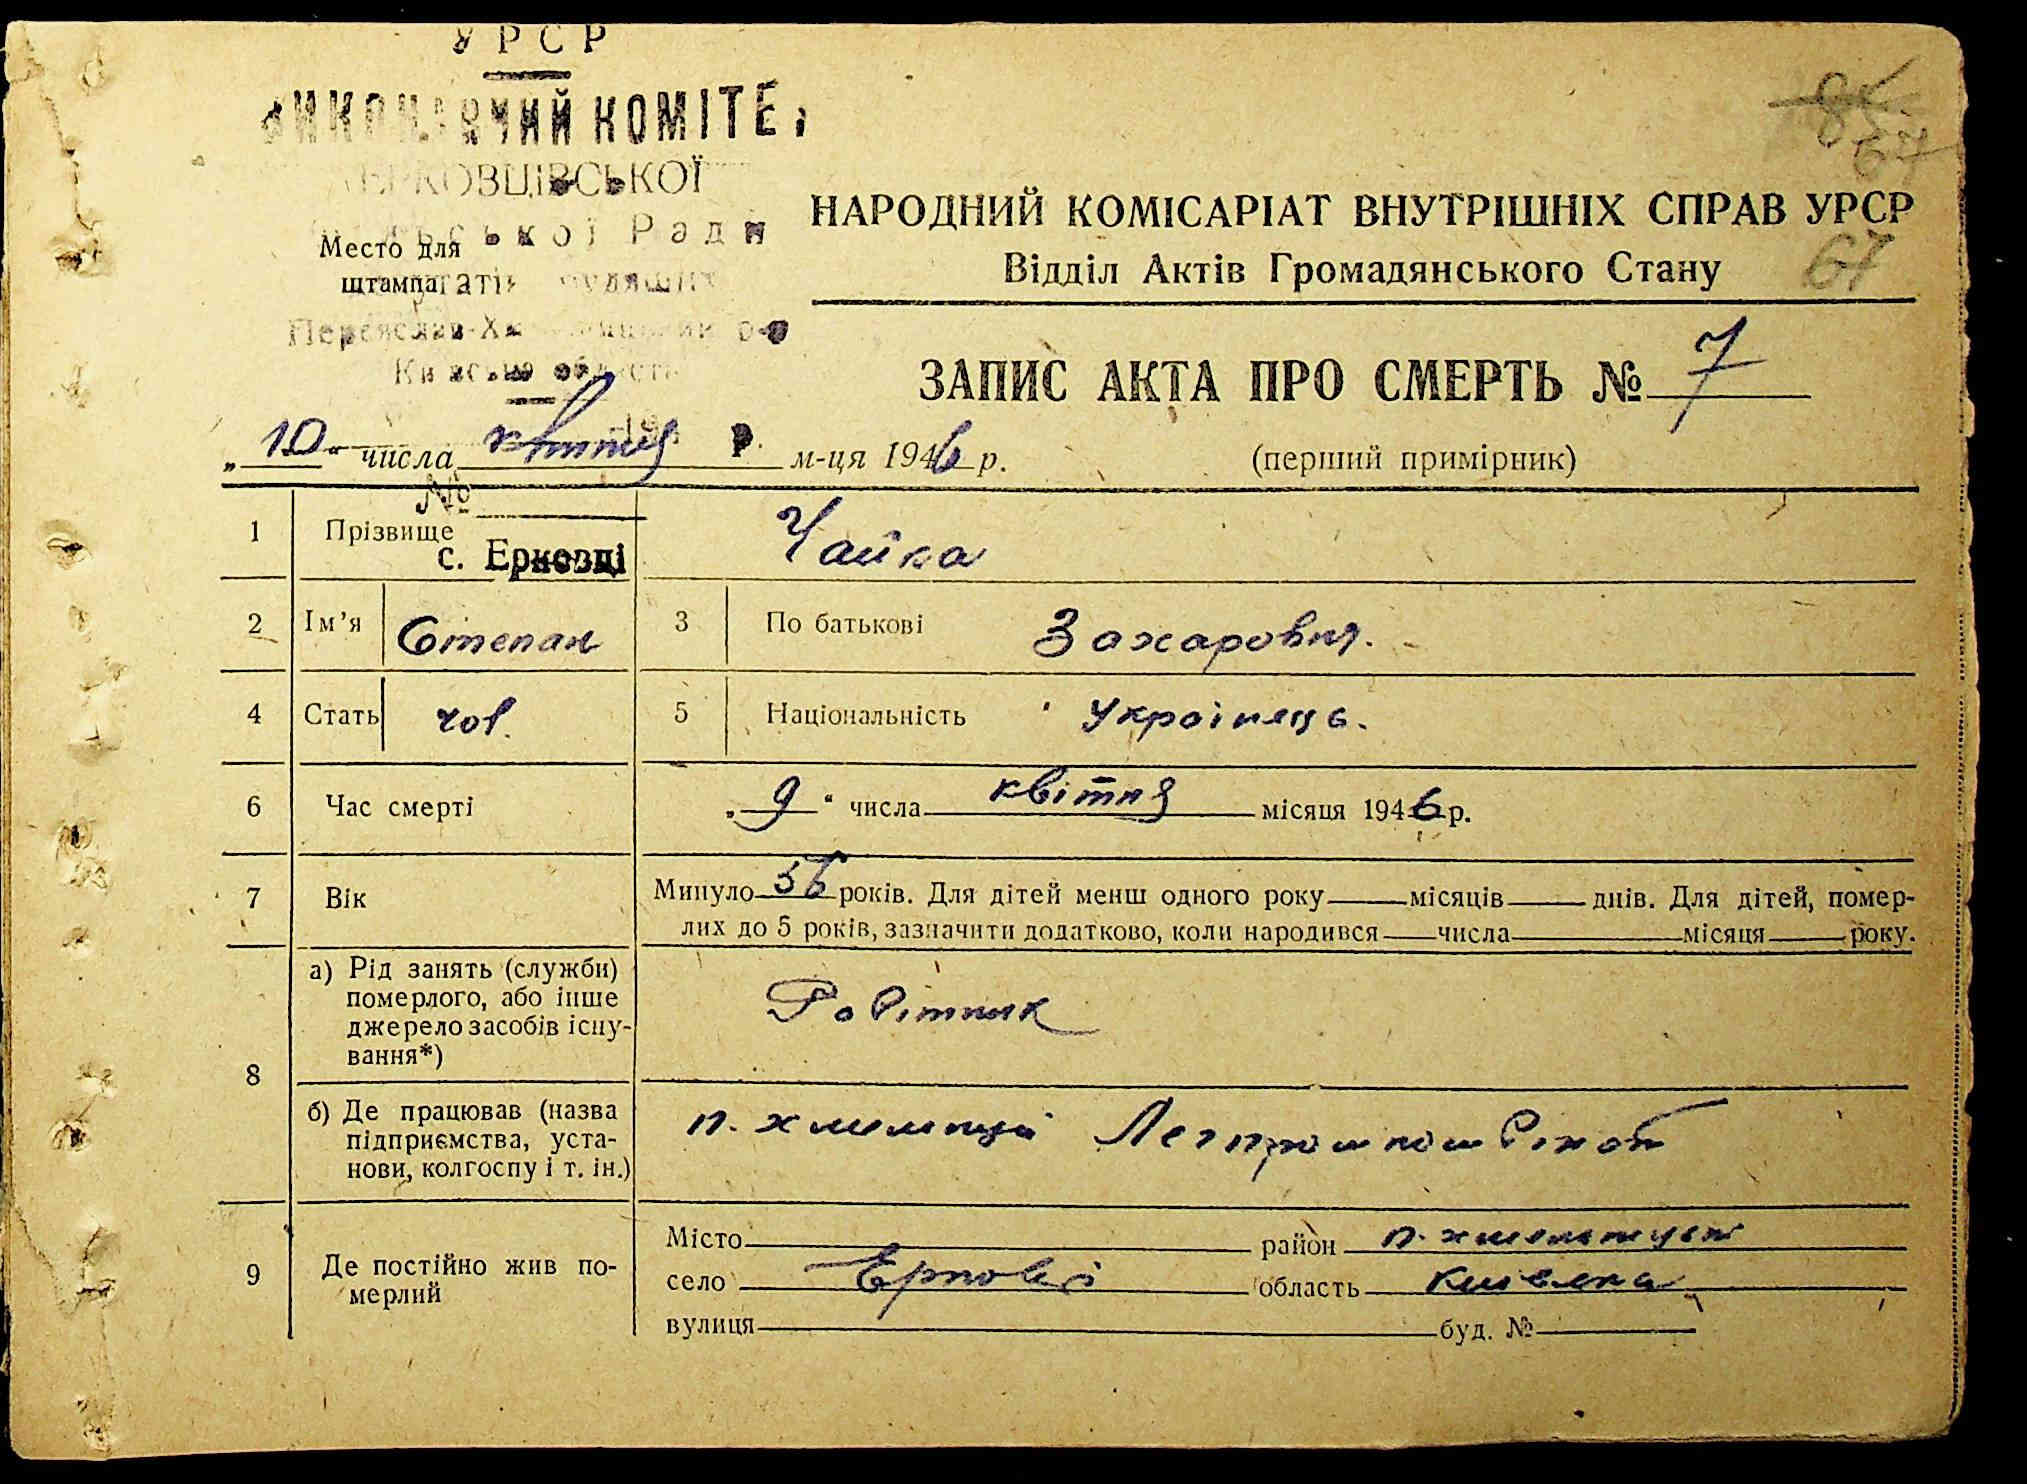 УРСР
ВИКОНАВЧИЙ КОМІТЕТ
ЄРКОВЦІВСЬКОЇ
сільської Ради
Место для
штампа
Переяслав-Хмельницький р-н
Київської області
85
67
НАРОДНИЙ КОМІСАРІАТ ВНУТРІШНІХ СПРАВ УРСР
Відділ Актів Громадянського Стану
67
ЗАПИС АКТА ПРО СМЕРТЬ № 7
„10“ числа квітня м-ця 1946 р.
(перший примірник)
№
1 Прізвище Чайка
с. Ерковці
2 Ім’я Степан 3 По батькові Захарович.
4 Стать чол. 5 Національність Українець.
6 Час смерті „9“ числа квітня місяця 1946 р.
7 Вік Минуло 56 років. Для дітей менш одного року місяців днів. Для дітей, помер-
лих до 5 років, зазначити додатково, коли народився числа місяця року.
8 а) Рід занять (служби)
померлого, або інше
джерело засобів існу-
вання*)
Робітник
б) Де працював (назва
підприємства, уста-
нови, колгоспу і т. ін.)
п.
9 Де постійно жив по-
мерлий
Місто район п.
село Ерковці область Київська
вулиця буд. №